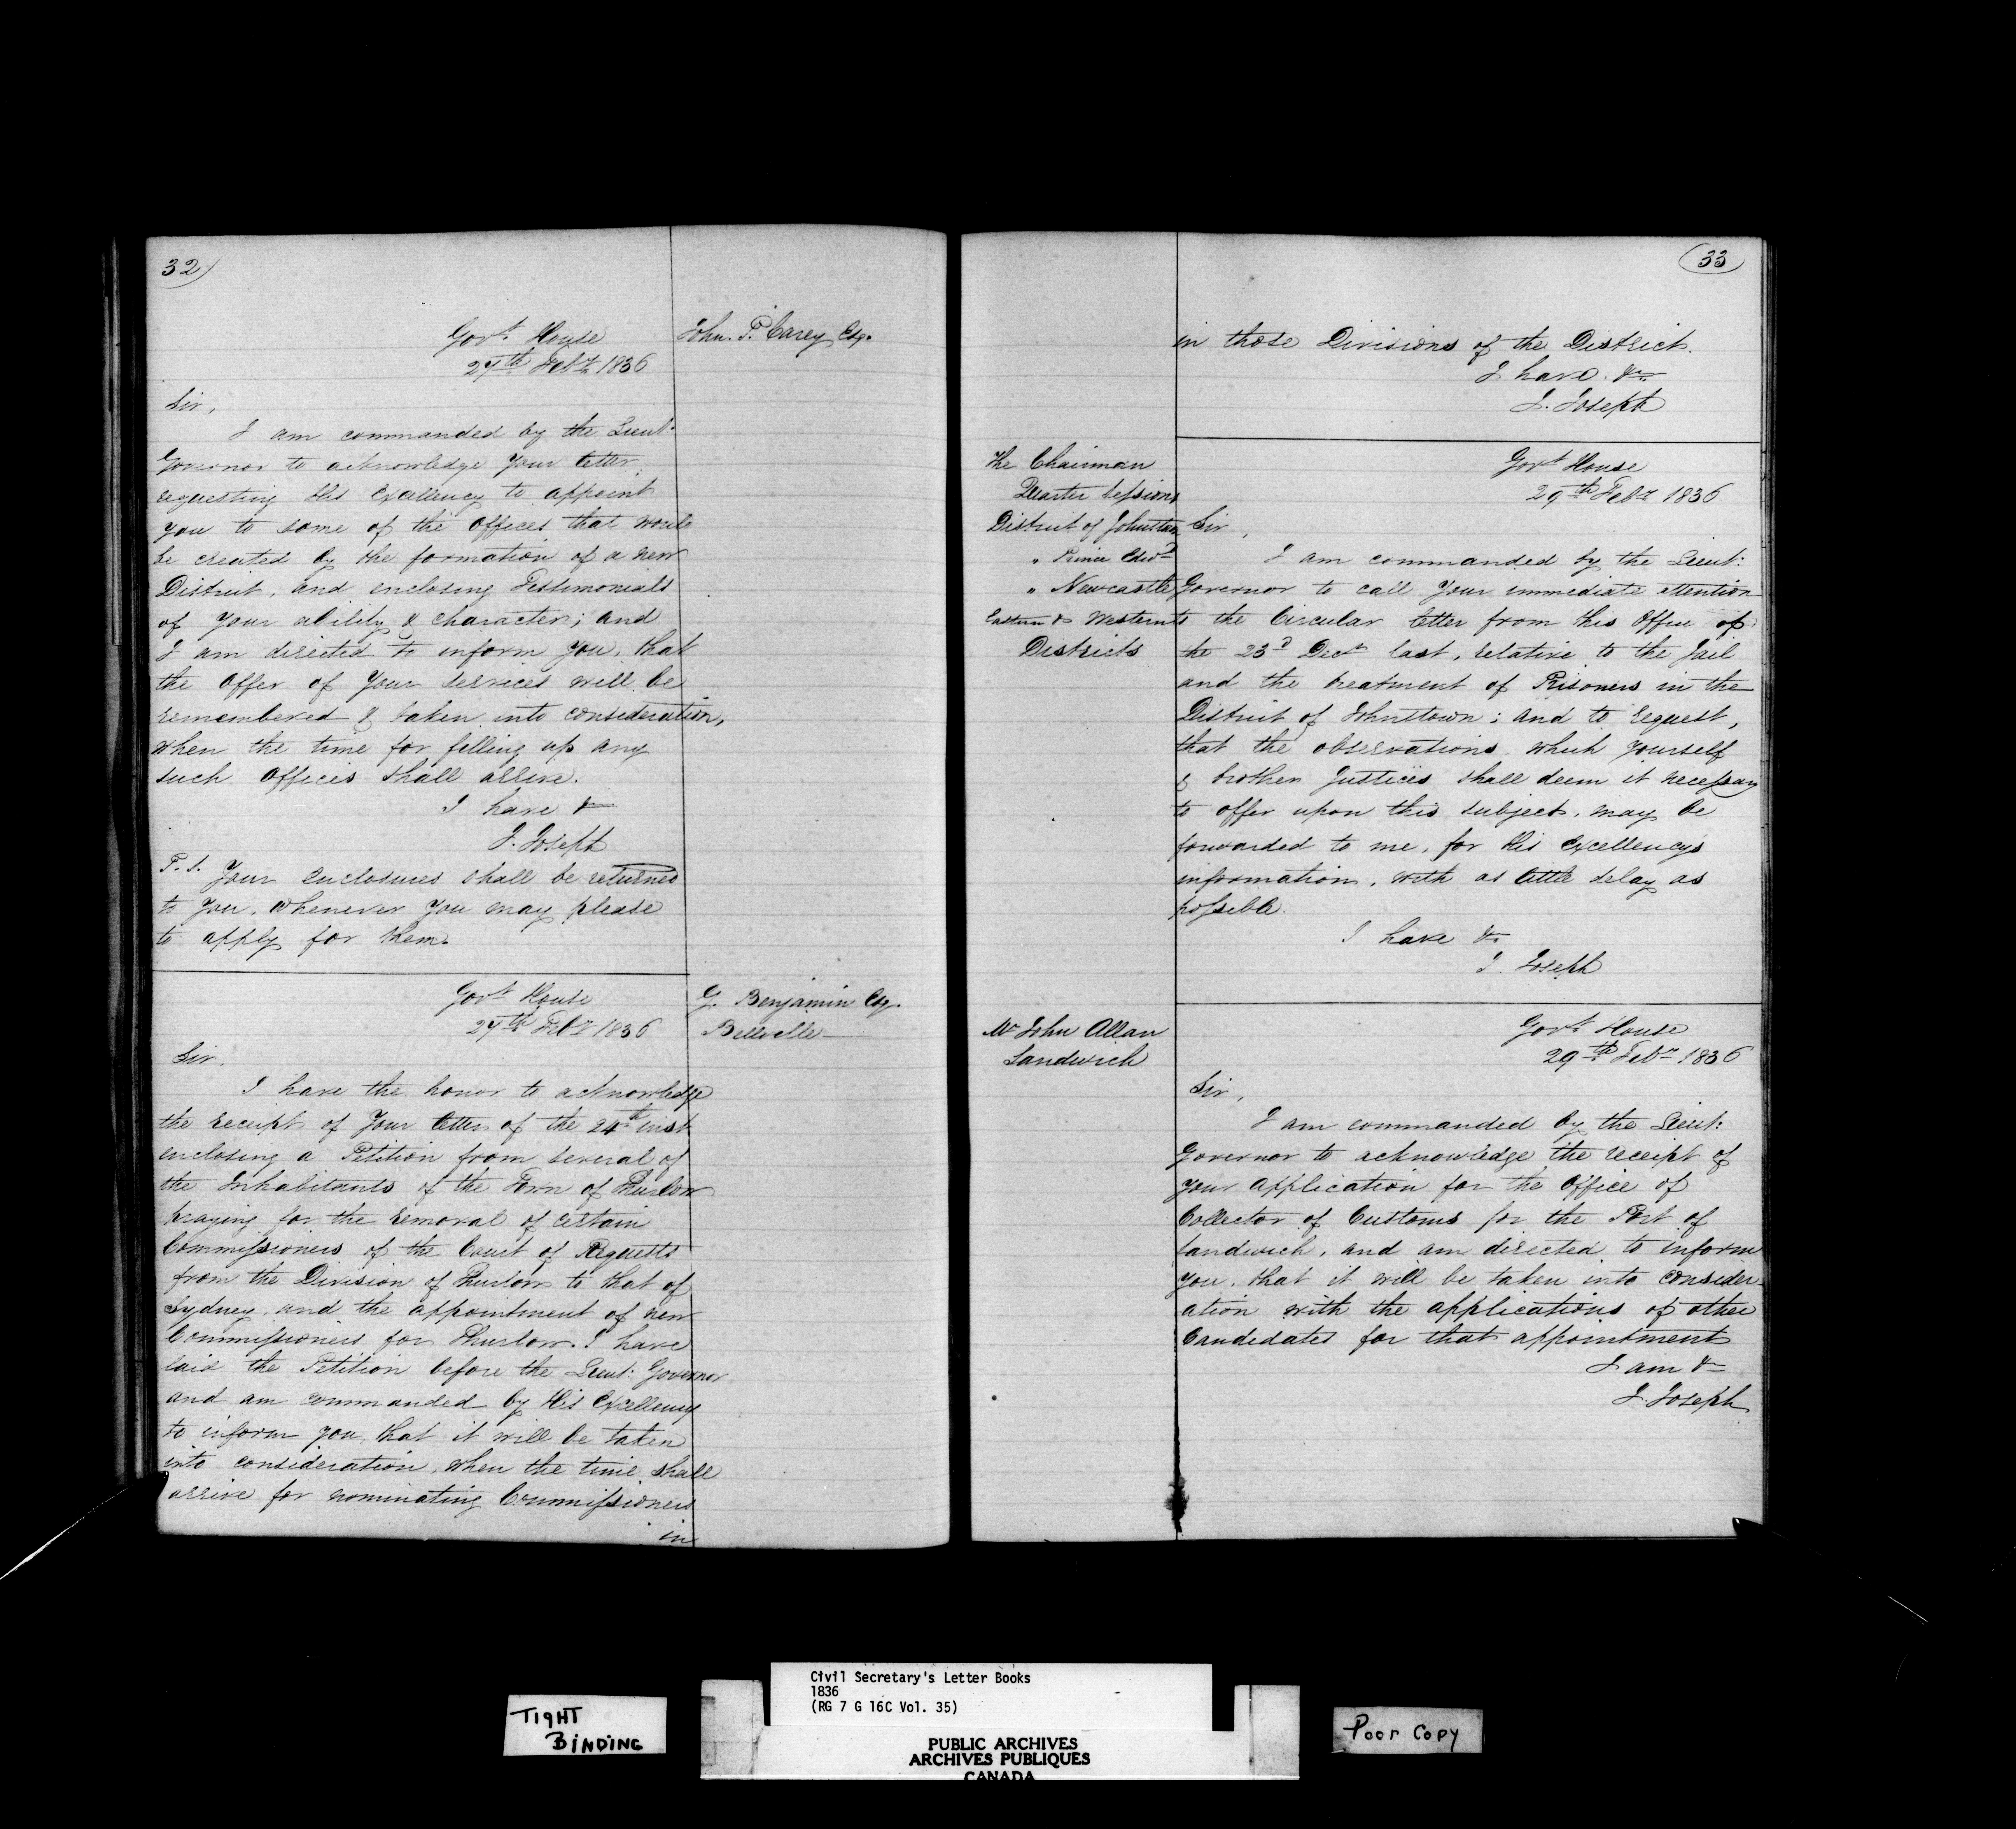 32
Govt. House
27th Feby 1836
John. P. Carey Esq.
Sir,
I am commanded by the Lieut:
Governor to acknowledge Your letter
requesting His Excellency to appoint
you to some of the Offices that would
be created by the formation of a new
District, and enclosing Testimonials
of your ability & character; and
I am directed to inform you, that
the Offer of Your Services will be
remembered & taken into consideration,
when the time for filling up any
such Offices shall arrive.
I have &c
J. Joseph
P.S. Your enclosures shall be returned
to You, whenever You may please
to apply for them.
Govt. House
27th Feby 1836
G. Benjamin Esq.
Belleville
Sir,
I have the honor to acknowledge
the receipt of Your letter of the 24th inst
enclosing a Petition from several of
the Inhabitants of the Town of Thurlow
praying for the removal of certain
Commissioners of the Court of Requests
from the Division of Thurlow to that of
Sydney, and the appointment of new
Commissioners for Thurlow. I have
laid the Petition before the Lieut: Governor
and am commanded by His Excellency
to inform you, that it will be taken
into consideration, when the time shall
arrive for nominating Commissioners
in
33
in those Divisions of the District.
I have &c.
J. Joseph
The Chairman
Quarter Sessions
District of Johnstown
" Prince Edwd
" Newcastle
Eastern & Western
Districts
Govt House
29th Feby 1836
Sir,
I am commanded by the Lieut:
Governor to call Your immediate attention
to the Circular letter from this Office of
the 23d Decr last, relative to the Jail
and the treatment of Prisoners in the
District of Johnstown; and to request,
that the observations which yourself
& brother Justices shall deem it necessary
to offer upon this subject, may be
forwarded to me, for His Excellency's
information, with as little delay as
possible.
I have &c
J. Joseph
Mr John Allan
Sandwich
Govt. House
29th Feby 1836
Sir,
I am commanded by the Lieut:
Governor to acknowledge the receipt of
your application for the Office of
Collector of Customs for the Port of
Sandwich, and am directed to inform
you, that it will be taken into consider-
ation with the applications of other
Candidates for that appointment
I am &c
J. Joseph
TIGHT
BINDING
Civil Secretary's Letter Books
1836
(RG 7 G 16C Vol. 35)
PUBLIC ARCHIVES
ARCHIVES PUBLIQUES
CANADA
Poor Copy